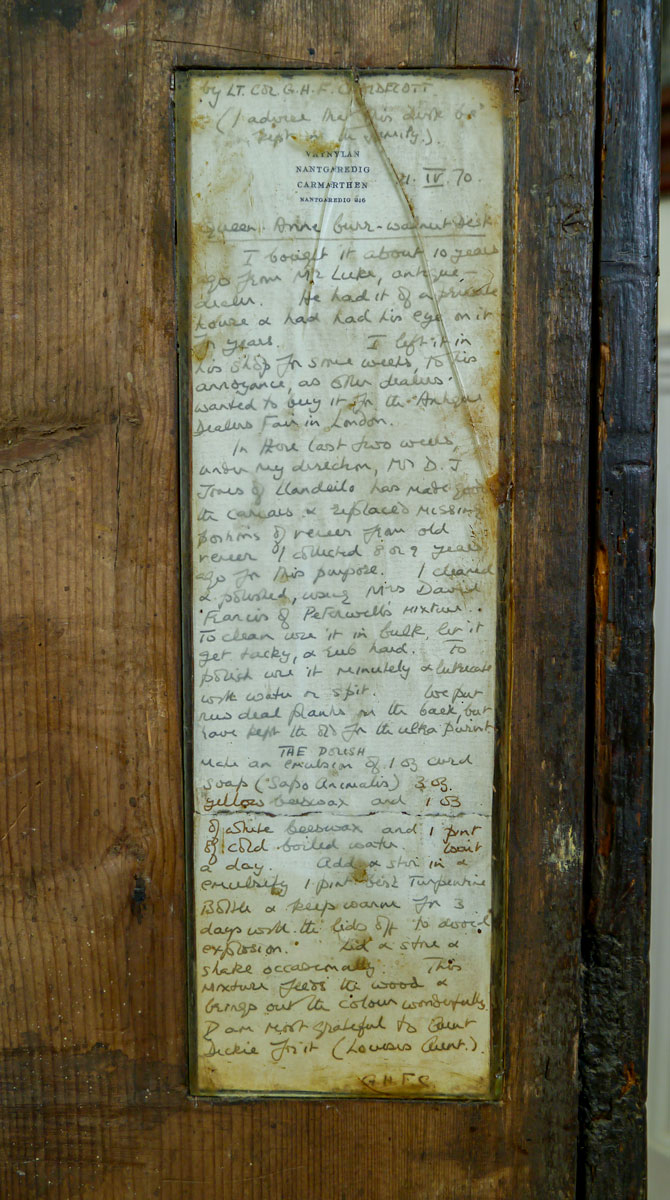 by LT. COL G.H.F.
(I advise that this desk be
kept in the family.)
NANTGAREDIG
CARMARTHEN
NANTGAREDIG 216
IV. 70.
Queen Anne burr-walnut desk
I bought it about 10 years
ago from Mr Luke, antique-
dealer. He had it of a private
house & had had his eye on it
for years. I left it in
his shop for some weeks, to his
annoyance, as other dealers
wanted to buy it for the Antique
Dealers Fair in London.
In these last two weeks,
under my direction, Mr D. J
Jones of Llandeilo has made good
the carcass & replaced MISSING
portions of veneer from old
veneer I collected 8 or 9 years
ago for this purpose. I cleaned
& polished, using Mrs David
Francis of Peterwell's MIXTURE.
To clean use it in bulk, let it
get tacky, & rub hard. To
polish use it minutely & lubricate
with water or spit. We put
new deal planks on the back, but
have kept the old for the ultra purist
THE POLISH
Make an emulsion of 1 oz curd
soap (Sapo Animalis) 3 oz.
yellow beeswax and 1 oz
of white beeswax and 1 pint
of cold boiled water. Wait
a day. Add & stir in &
emulsify 1 pint best Turpentine
Bottle & keep warm for 3
days with the lids off to avoid
explosion. Lid & store &
shake occasionally. This
mixture feeds the wood &
brings out the colour wonderfully.
I am most grateful to Aunt
Dickie for it (Louisa's Aunt.).
G.H.F.C.